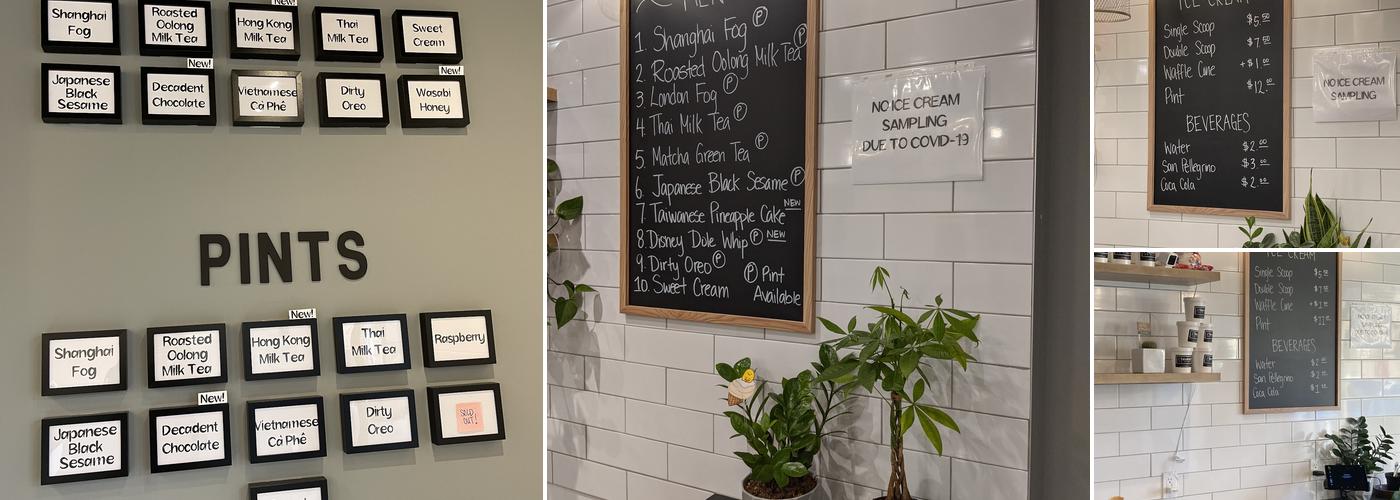 Shanghai
Fog
Roasted
Oolong
Milk Tea
New!
Hong Kong
Milk Tea
Thai
Milk Tea
Sweet
Cream
Japanese
Black
Sesame
New!
Decadent
Chocolate
Vietnamese
Cà Phê
Dirty
Oreo
New!
Wasabi
Honey
PINTS
Shanghai
Fog
Roasted
Oolong
Milk Tea
New!
Hong Kong
Milk Tea
Thai
Milk Tea
Raspberry
Japanese
Black
Sesame
New!
Decadent
Chocolate
Vietnamese
Cà Phê
Dirty
Oreo
SOLD
OUT!
1. Shanghai Fog P
2. Roasted Oolong Milk Tea P
3. London Fog P
4. Thai Milk Tea P
5. Matcha Green Tea P
6. Japanese Black Sesame P
7. Taiwanese Pineapple Cake NEW
8. Disney Dole Whip P NEW
9. Dirty Oreo P
10. Sweet Cream
P Pint
Available
NO ICE CREAM
SAMPLING
DUE TO COVID-19
ICE CREAM
Single Scoop $5.50
Double Scoop $7.50
Waffle Cone +$1.00
Pint $12.00
BEVERAGES
Water $2.00
San Pellegrino $3.00
Coca Cola $2.00
NO ICE CREAM
SAMPLING
ICE CREAM
Single Scoop
Double Scoop
Waffle Cone
Pint
BEVERAGES
Water
San Pellegrino
Coca Cola